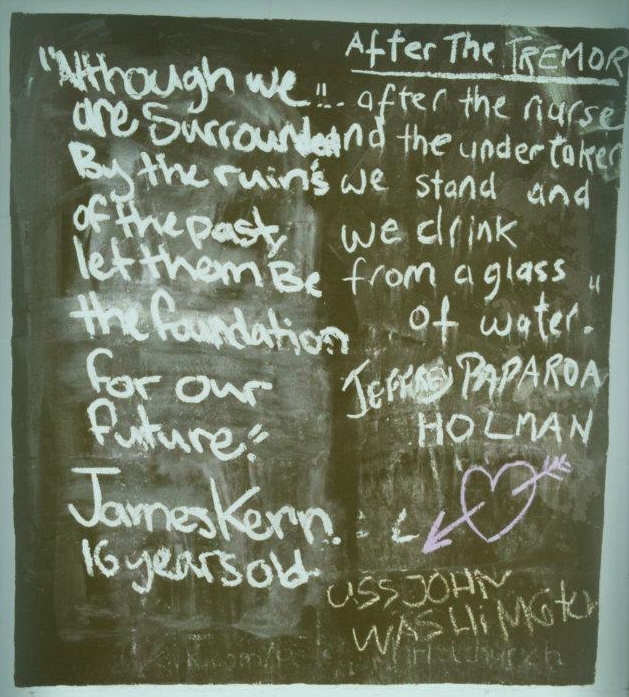 "Although we
are Surrounded
By the ruins
of the past,
let them Be
the foundation
for our
future."
James Kerr.
16 years old
After The TREMOR
"... after the nurse
and the undertaker
we stand and
we drink
from a glass
of water."
JEFFREY PAPAROA
HOLMAN
USS JOHN
WASHINGton